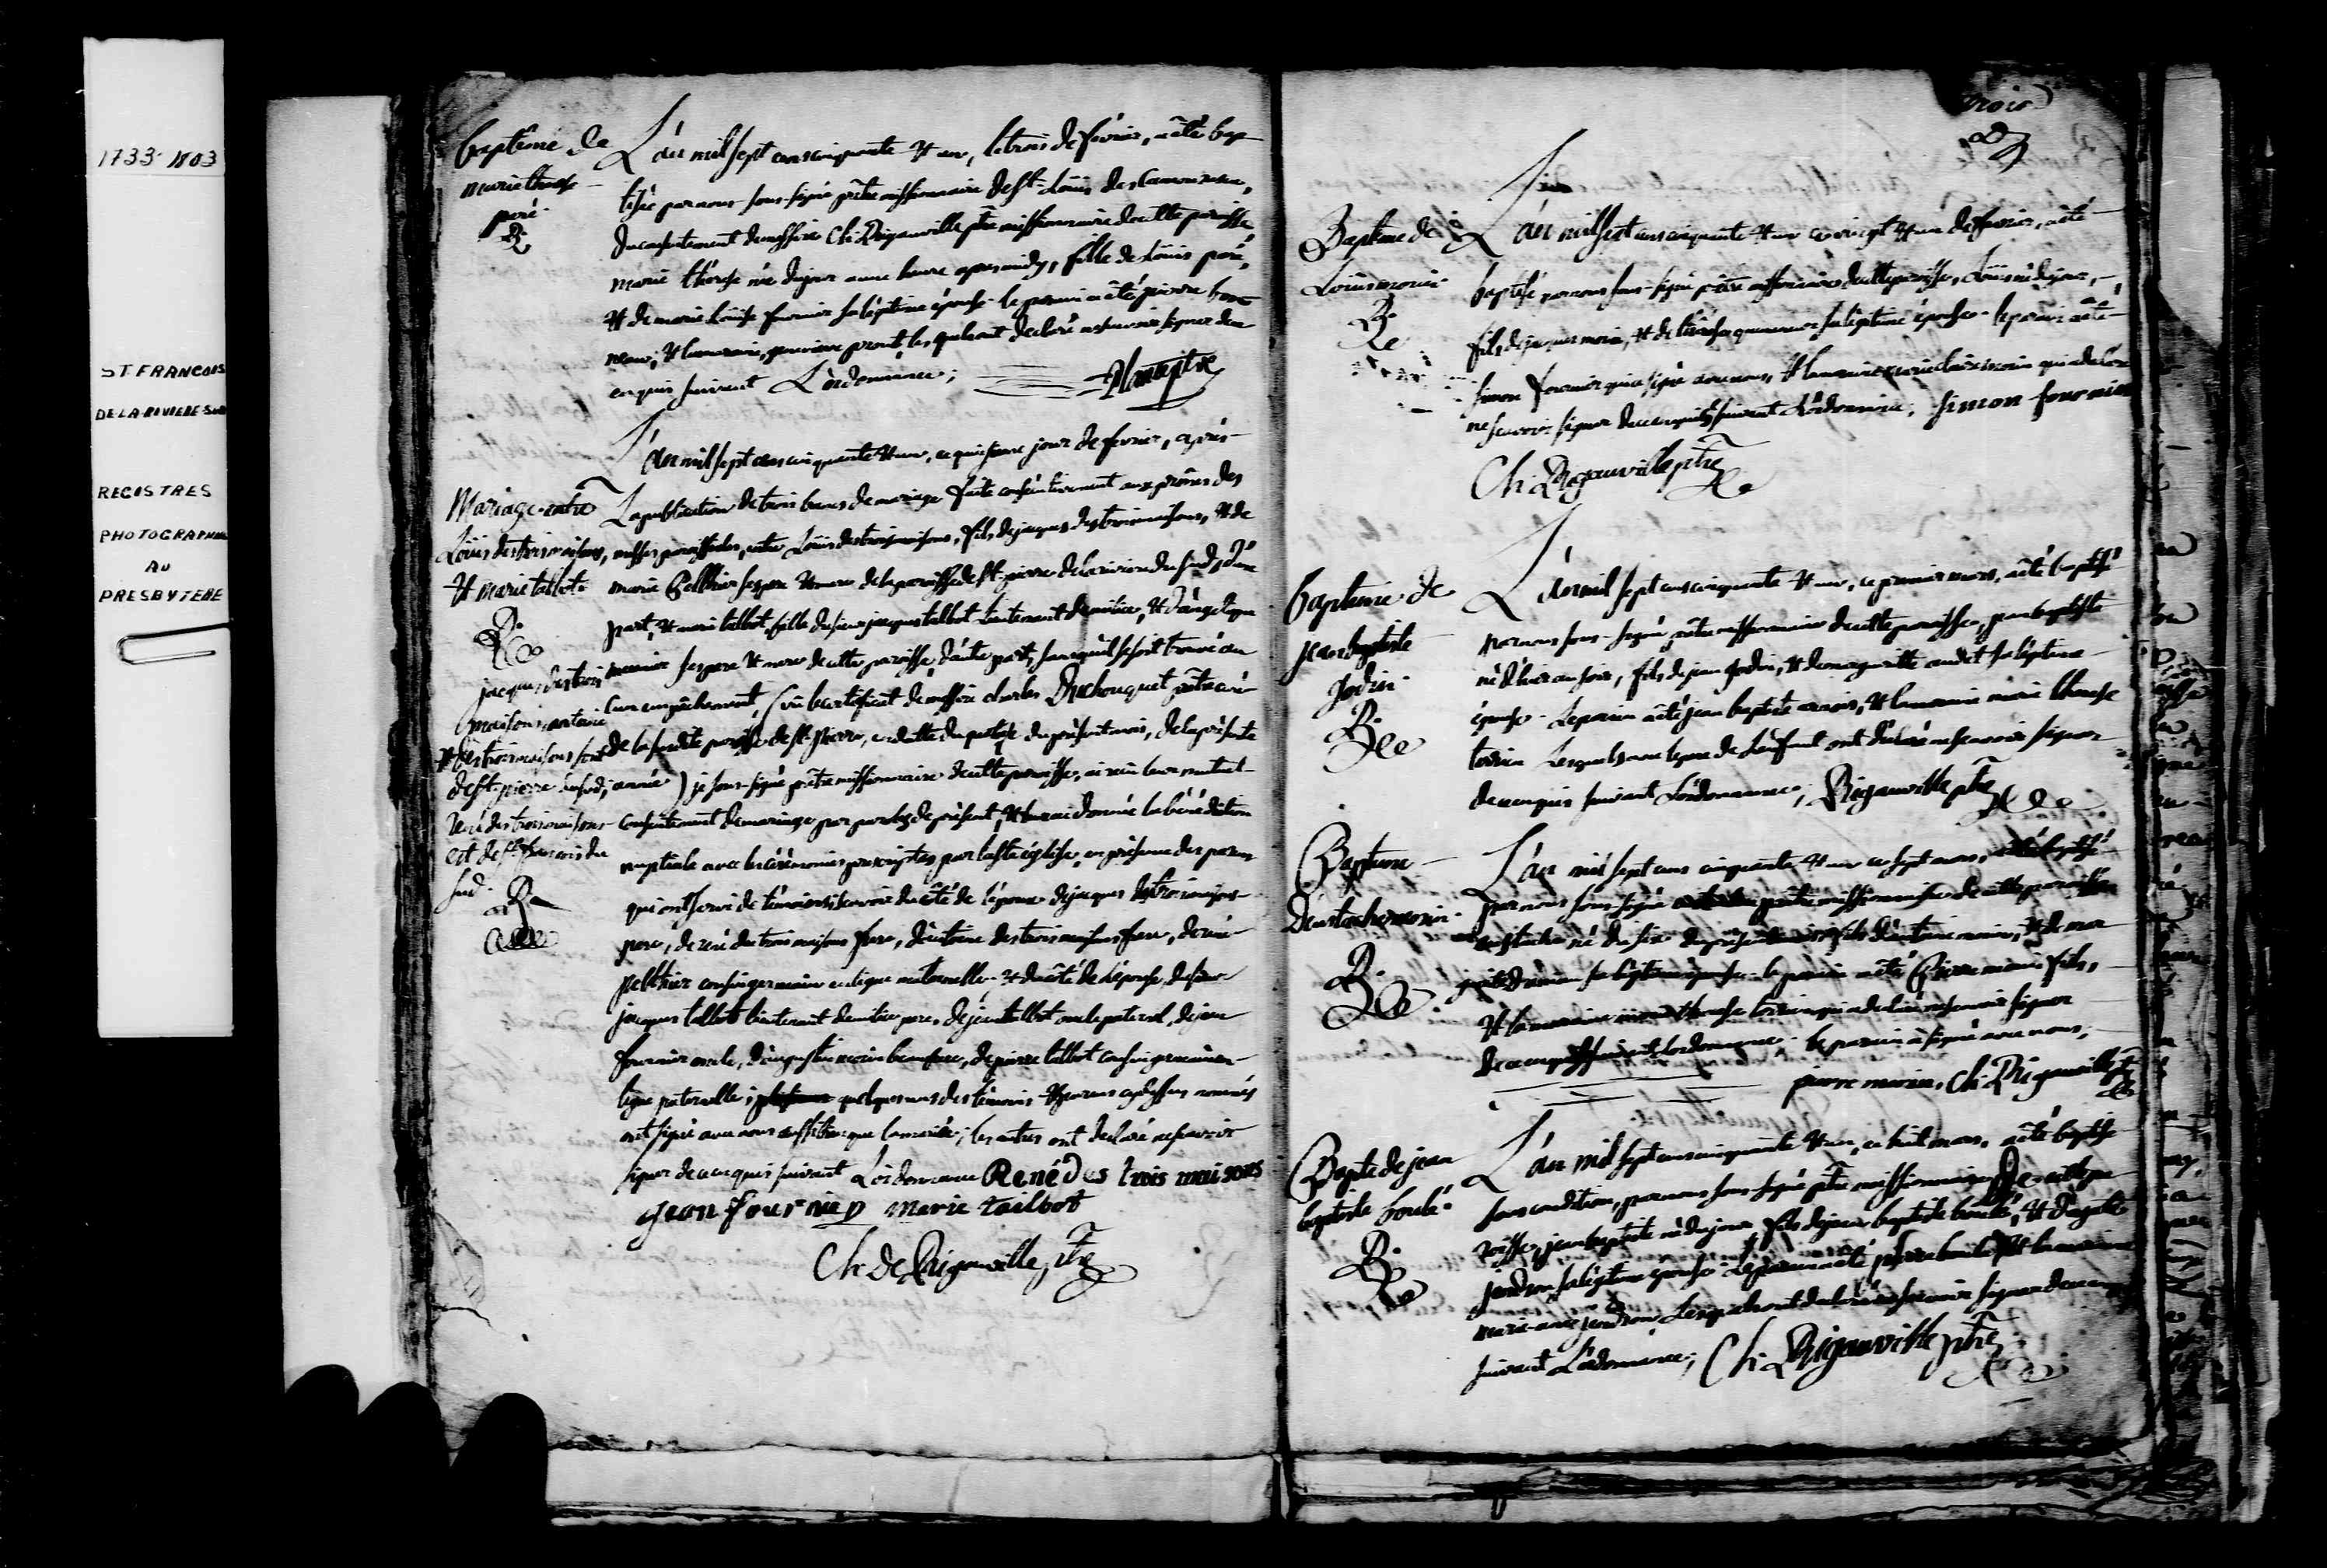 1733-1803
ST. FRANCOIS
DE-LA-RIVIERE-SUD
REGISTRES
PHOTOGRAPHIES
AU
PRESBYTERE
baptême de
marie therese
poré
B.
L'an mil sept cens cinquante et un, le trois de fevrier, a été bap-
tisée par nous sous-signé prêtre missionnaire de st. Louis
du consentement de messire Ch: Rigauville ptre missionnaire de cette paroisse
marie thérese née du jour a une heure apres midy, fille de Louis poré,
et de marie Louise fournier sa légitime épouse. le parrain a été pierre bon-
neau; et la marraine, genevieve prout, lesquels ont declaré ne scavoir signer de ce
enquis suivant L'ordonnance;
Mariage entre
Louis destroismaisons,
et marie talbot.
L'an mil sept cens cinquante et un, ce quinzieme jour de fevrier, après
La publication de trois bans de mariage faite consécutivement aux prônes des
messes paroissiales, entre Louis destroismaisons, fils de jacques destroismaisons, et de
marie Pellthier ses pere et mere de la paroisse de st. pierre de la riviere du sud, d'une
part, et marie talbot, fille du sieur jacques talbot Lieutenant de milice, et d'angelique
meunier ses pere et mere de cette paroisse, d'autre part, sans qu'il se soit trouvé au-
cun empêchement, (vû le certificat de messire charles Duchouquet prêtre curé
de la susdite paroisse de st. pierre, en datte du quatorze du présent mois, de la présente
année) je sous-signé prêtre missionnaire de cette paroisse, ai reçu leur mutuel
consentement de mariage par paroles de présent, et leur ai donné la bénédiction
nuptiale avec les cérémonies prescriptes par la ste église, en présence des parens
jacques destrois
maisons, antoine
destroismaisons sont
de st. pierre du sud,
rené destroismaisons
est de st. françois du
sud.
qui ont servi de témoins scavoir du côté de l'époux de jacques destroismaisons
pere, de rené destroismaisons frere, d'antoine destroismaisons frere, de rené
pellthier cousin germain en ligne maternelle. et du côté de L'épouse, du sieur
jacques talbot lieutenant de milice pere, de jean talbot oncle paternel, de jean
fournier oncle, d'augustin morin beaufrere, de pierre talbot cousin germain en
ligne paternelle; quelques uns des témoins et parens cydessus nommés
ont signé avec nous aussi bien que la mariée; les autres ont declaré ne scavoir
signer de ce enquis suivant L'ordonnance René Des trois maisons
jean fournier marie tailbot
Ch: de Rigauville, ptre
trois
Baptême de
Louis morin.
B.
L'an mil sept cens cinquante et un ce vingt et un de fevrier, a été
baptisé par nous sous-signé prêtre missionnaire de cette paroisse, Louis né du jour,
fils de jacques morin, et de sa légitime épouse. le parain a été
simon fournier qui a signé avec nous, et la maraine marie claire morin qui a declaré
ne scavoir signer de ce enquis suivant L'ordonnance; simon fournier
Ch: Rigauville ptre
baptême de
jean baptiste
jodin.
B.
L'an mil sept cens cinquante et un, ce premier mars, a été baptisé
par nous sous-signé prêtre missionnaire de cette paroisse, jean baptiste
né d'hier au soir, fils de jean jodin, et de marguerite sa légitime
épouse. Le parain a été jean baptiste et la maraine marie therese
Lesquels avec le pere de L'enfant ont declaré ne scavoir signer
de ce enquis suivant L'ordonnance; Rigauville ptre
Baptême
D'eustache morin.
B.
L'an mil sept cens cinquante et un ce sept mars, a été baptisé
par nous sous-signé prêtre missionnaire de cette paroisse
eustache né du six du présent mois fils d'antoine morin, et de mar-
sa légitime épouse. le parain a été Pierre morin fils,
et la maraine marie therese qui a declaré ne scavoir signer
de ce enquis suivant L'ordonnance. le parain a signé avec nous,
pierre morin, Ch: Rigauville ptre
Bapte de jean
baptiste boulé.
B.
L'an mil sept cens cinquante et un, ce huit mars, a été baptisé
sous condition, par nous sous-signé ptre missionnaire De cette pa-
roisse, jean baptiste né du jour, fils de jean baptiste boulé, et
jendron sa légitime épouse. Le parain a été pierre boulé et la maraine
marie jendron, Lesquels ont declaré ne scavoir signer de ce enquis
suivant L'ordonnance; Ch: Rigauville ptre